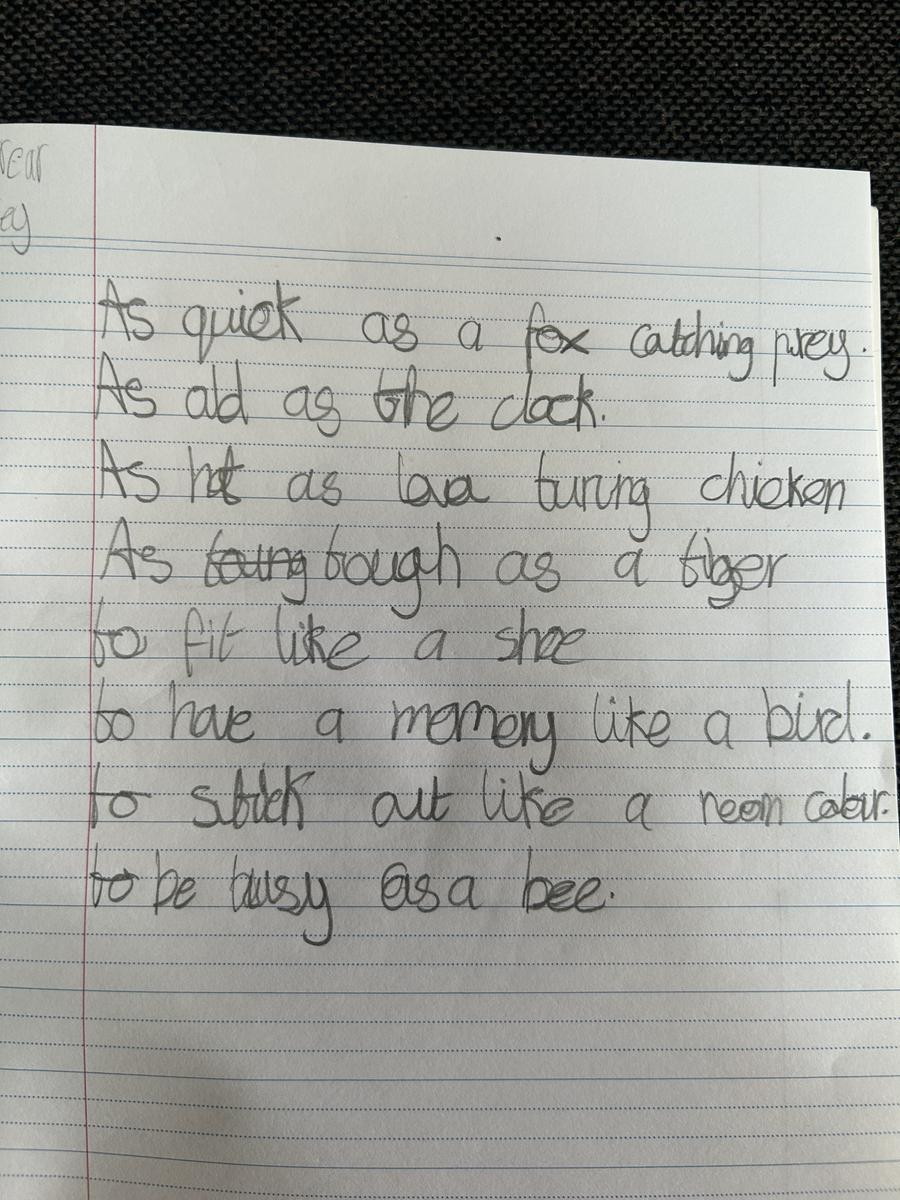 rear
ey
As quick as a fox catching prey.
As old as the clock.
As hot as lava turing chicken
As tough as a tiger
to fit like a shoe
to have a memory like a bird.
to stick out like a neon colour.
to be busy as a bee.